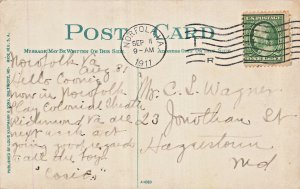 POST CARD
MESSAGE MAY BE WRITTEN ON THIS SIDE
ADDRESS ONLY ON THIS SIDE
NORFOLK, VA
SEP
9-AM
1911
Norfolk Va
Aug 31
Hello
now in Norfolk
Play Colonial Theatre
Richmond Va
next week act
going good regards
to all the boys
Mr. C. L. Wagner
23 Jonathan St
Hagerstown
Md